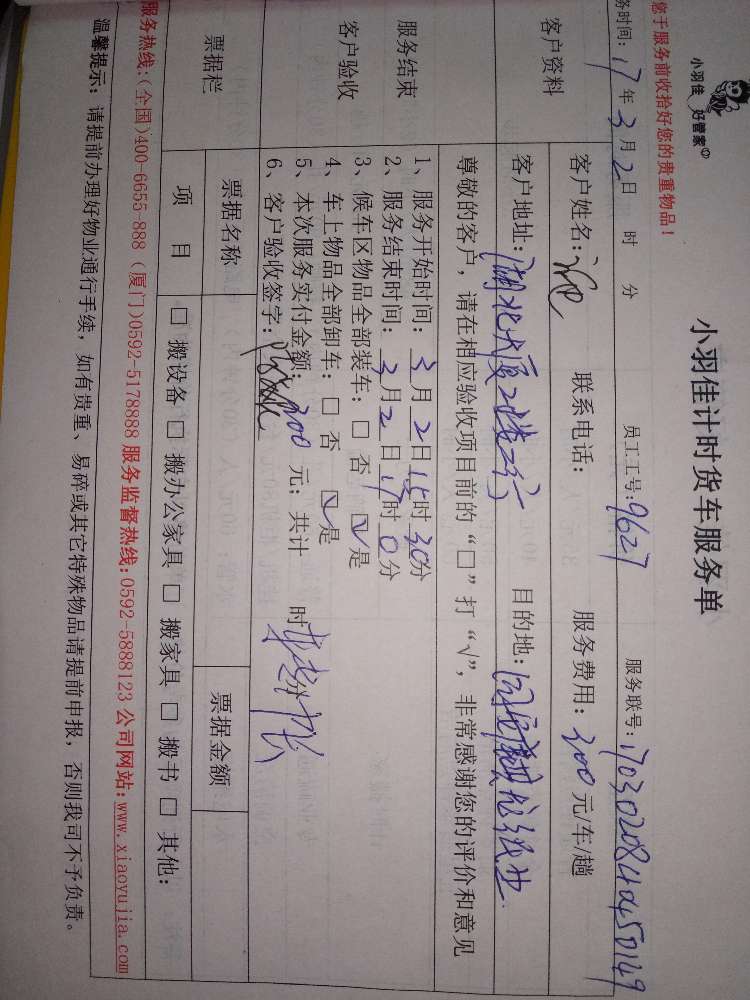 小羽佳 好管家
小羽佳计时货车服务单
您于服务前收拾好您的贵重物品！
务时间：17年3月2日 时 分 员工工号：9627 服务联号：1703020840450149
客户资料
客户姓名： 联系电话： 服务费用：300元/车/趟
客户地址：湖北大厦 目的地：
尊敬的客户，请在相应验收项目前的“□”打“√”，非常感谢您的评价和意见
服务结束
客户验收
1、服务开始时间：3月2日15时30分
2、服务结束时间：3月2日17时0分
3、候车区物品全部装车：□ 否 ☑是
4、车上物品全部卸车：□ 否 ☑是
5、本次服务实付金额：300元；共计 时 分
6、客户验收签字：
票据栏
票据名称 票据金额
项 目 □ 搬设备 □ 搬办公家具 □ 搬家具 □ 搬书 □ 其他：
服务热线：（全国）400-6655-888（厦门）0592-5178888 服务监督热线：0592-5888123 公司网站：www.xiaoyujia.com
温馨提示：请提前办理好物业通行手续，如有贵重、易碎或其它特殊物品请提前申报，否则我司不予负责。